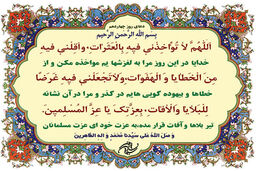 دعای روز چهاردهم
بسم الله الرحمن الرحیم
اللهم لا تؤاخذني فيه بالعثرات، واقلني فيه
خدایا در این روز مرا به لغزشها یم مواخذه مکن و از
من الخطايا و الهفوات، ولا تجعلني فيه غرضا
خطاها و بیهوده کویی هایم در گذر و مرا در آن نشانه
للبلايا والآفات، بعزتک يا عز المسلمين
تیر بلاها و آفات قرار مده، به عزت خود ای عزت مسلمانان
و صل الله علی سیدنا محمد و آله الطاهرین